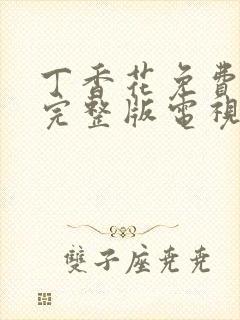 丁香花免費
完整版電視
雙子座堯堯